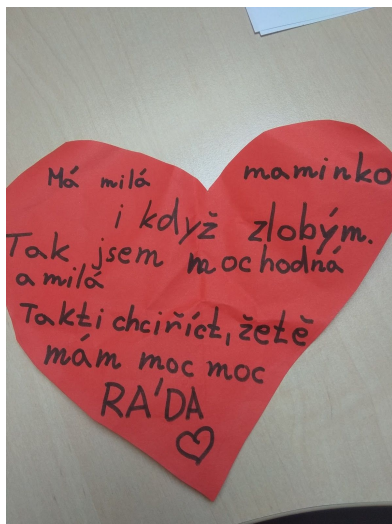 Má milá maminko
i když zlobým.
Tak jsem mochodná
a milá
Takti chciříct, žetě
mám moc moc
RÁDA